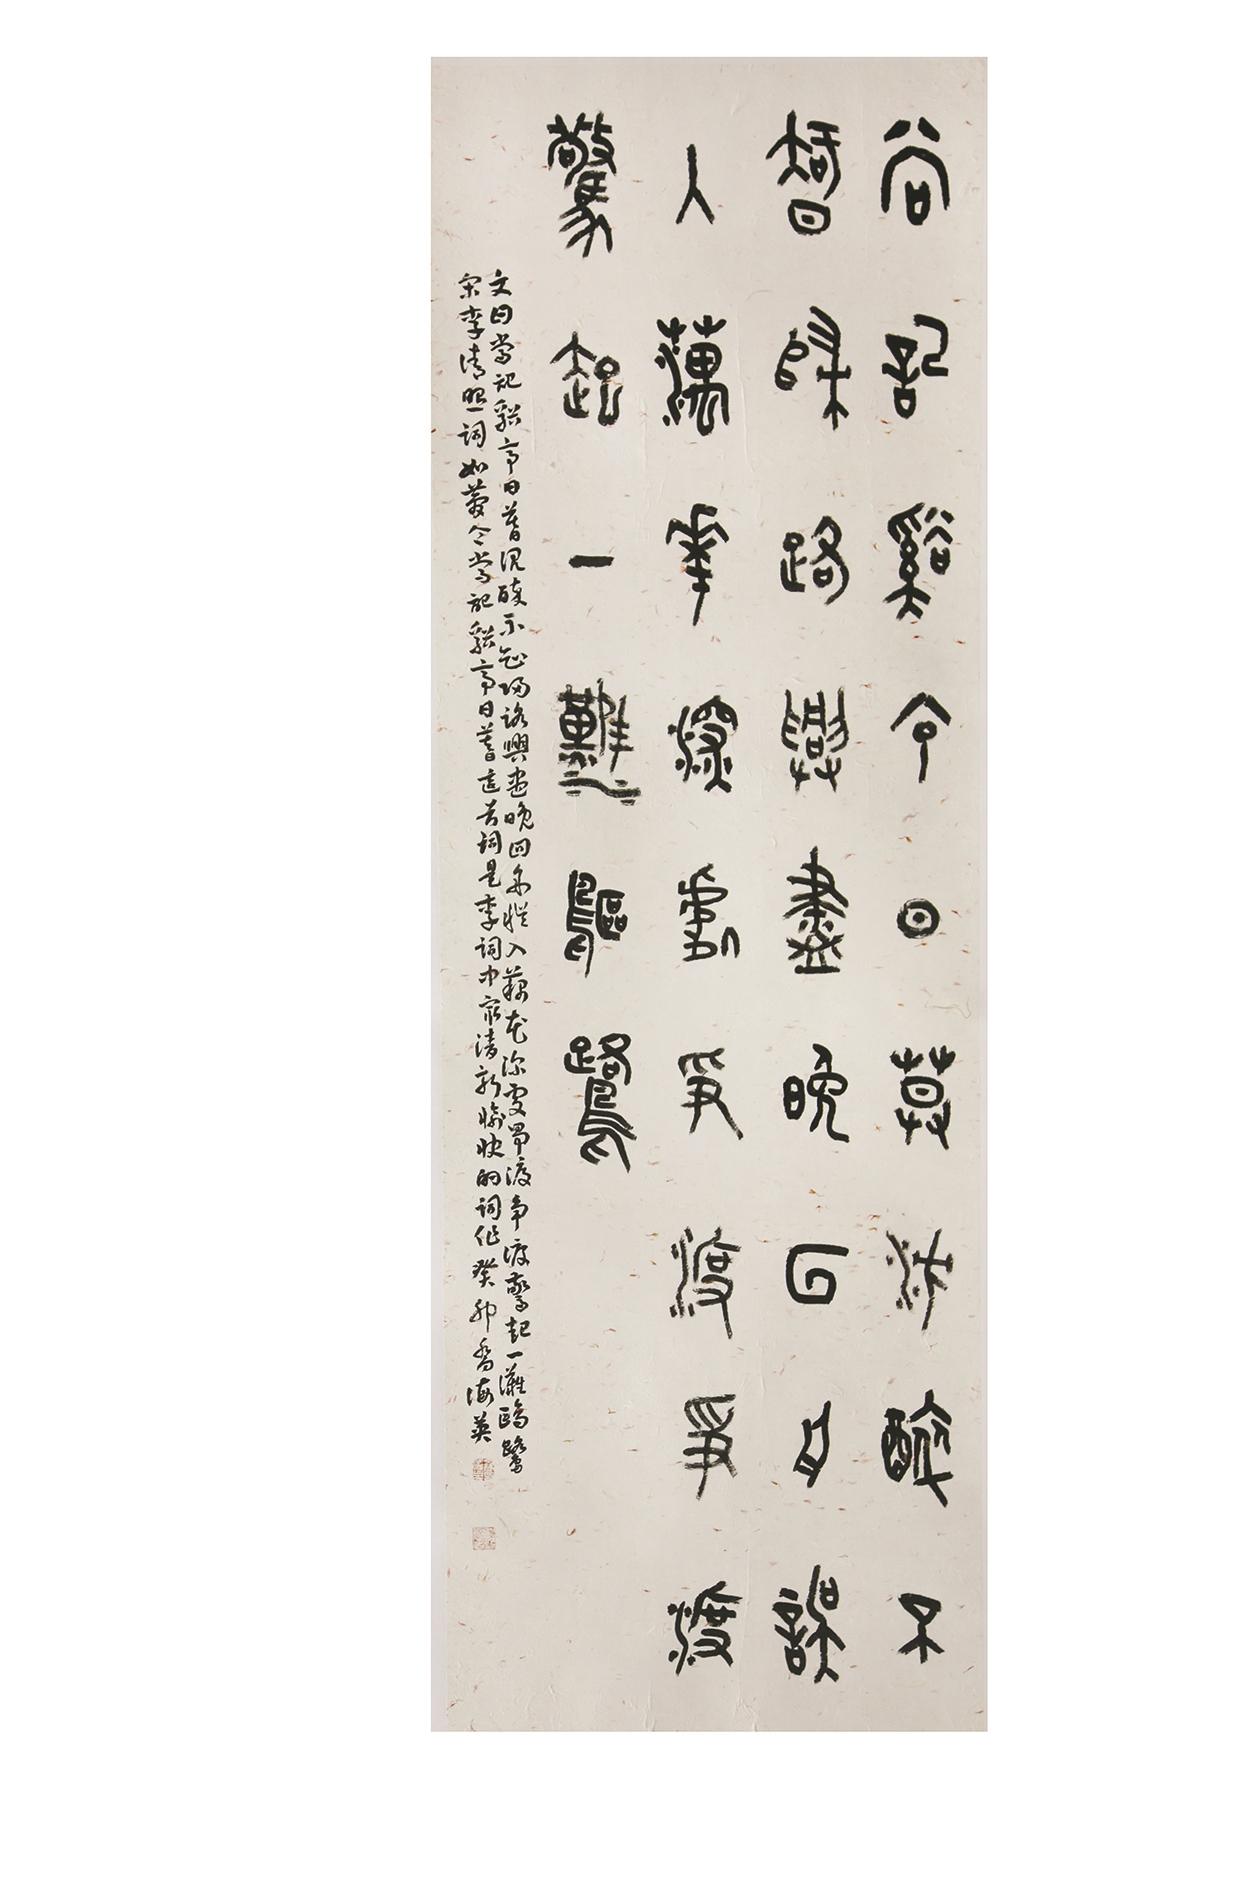 尚記谿亭日莫沈醉不
智歸路興盡晚回舟誤
入藕華深處爭渡爭渡
驚起一灘鷗鷺
文曰常記谿亭日暮沉醉不知歸路興盡晚回舟悮入藕花深處爭渡爭渡驚起一灘鷗鷺
宋李清照詞如夢令常記谿亭日暮這首詞是李詞中最清新愉快的詞作癸卯喬海英